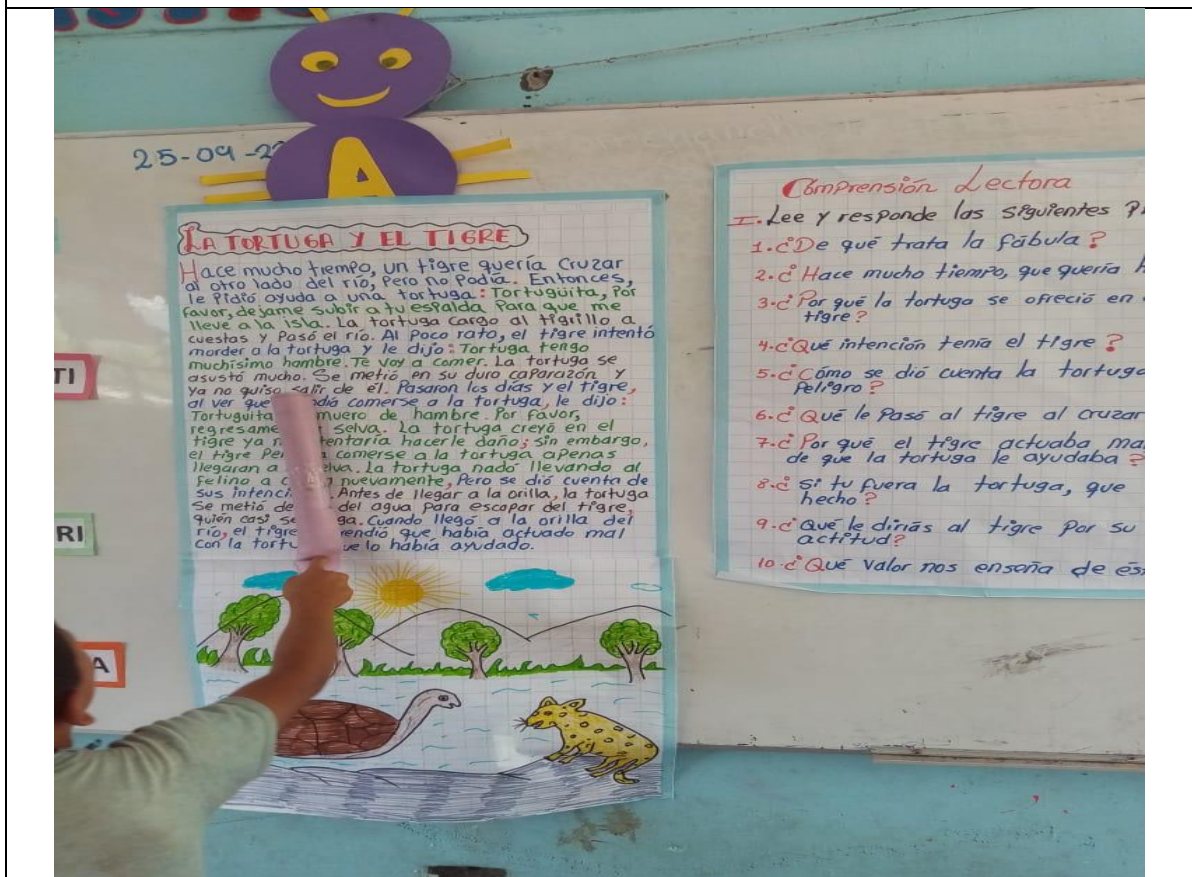 25-09-2
A
LA TORTUGA Y EL TIGRE
Hace mucho tiempo, un tigre quería cruzar
al otro lado del río, pero no podía. Entonces,
le pidió ayuda a una tortuga: Tortuguita, por
favor, dejame subir a tu espalda para que me
lleve a la isla. La tortuga cargo al tigrillo a
cuestas y pasó el río. Al poco rato, el tigre intentó
morder a la tortuga y le dijo: Tortuga tengo
muchísimo hambre. Te voy a comer. La tortuga se
asustó mucho. Se metió en su duro caparazón y
ya no quiso salir de él. Pasaron los días y el tigre,
al ver que comerse a la tortuga, le dijo:
Tortuguita muero de hambre. Por favor,
regresame selva. La tortuga creyó en el
tigre ya hacerle daño; sin embargo,
el tigre comerse a la tortuga apenas
llegaran a La tortuga nadó llevando al
felino a nuevamente, Pero se dió cuenta de
sus Antes de llegar a la orilla, la tortuga
se metió del agua para escapar del tigre,
quién casi se Cuando llegó a la orilla del
río, el tigre que había actuado mal
con la lo había ayudado.
Comprensión Lectora
I. Lee y responde las siguientes
1. ¿De qué trata la fábula?
2. ¿Hace mucho tiempo, que quería
3. ¿Por qué la tortuga se ofreció en
tigre?
4. ¿Qué intención tenía el tigre?
5. ¿Cómo se dió cuenta la tortuga
peligro?
6. ¿Qué le pasó al tigre al cruzar
7. ¿Por qué el tigre actuaba
de que la tortuga le ayudaba?
8. ¿Si tu fuera la tortuga, que
hecho?
9. ¿Qué le dirías al tigre por su
actitud?
10. ¿Qué valor nos enseña de
TI
RI
A